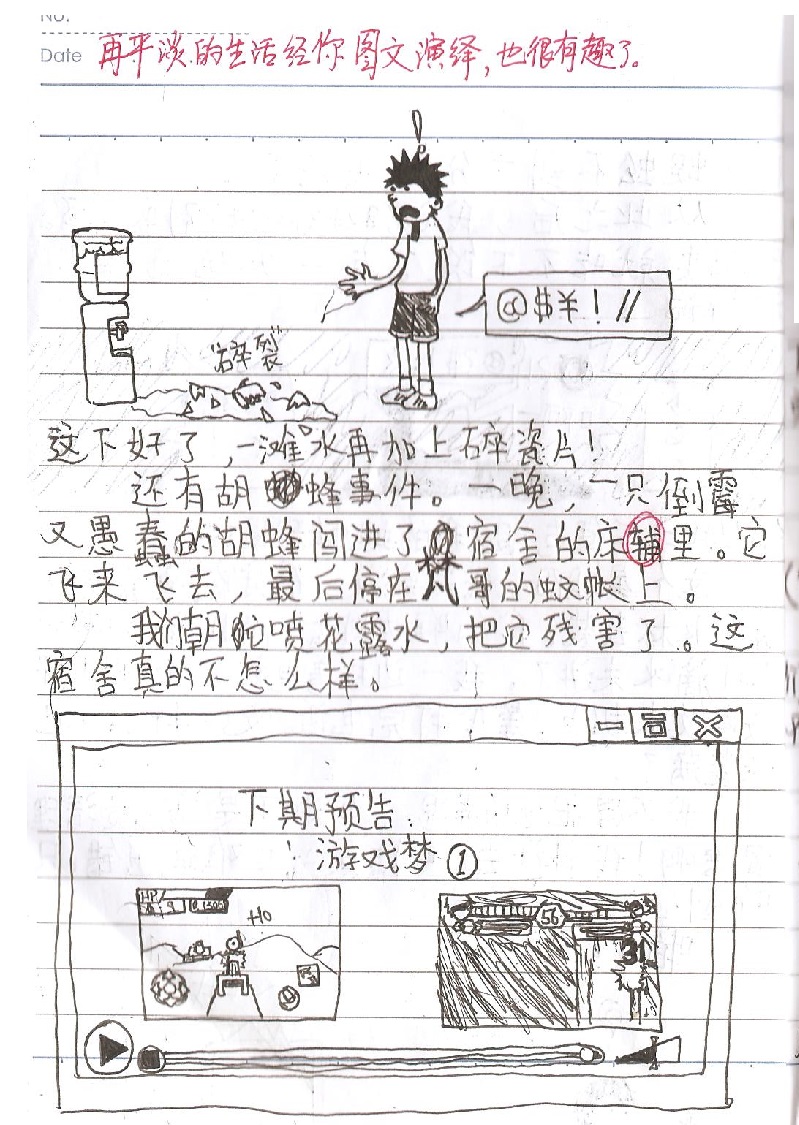 No.
Date 再平淡的生活经你图文演绎,也很有趣了。
!
@$¥!//
"碎裂"
这下好了,一滩水再加上碎瓷片!
还有胡蜂事件。一晚,一只倒霉
又愚蠢的胡蜂闯进了宿舍的床辅里。它
飞来飞去,最后停在梵哥的蚊帐上。
我们朝它喷花露水,把它残害了。这
宿舍真的不怎么样。
下期预告:
游戏梦①
HP
Ho
56
31